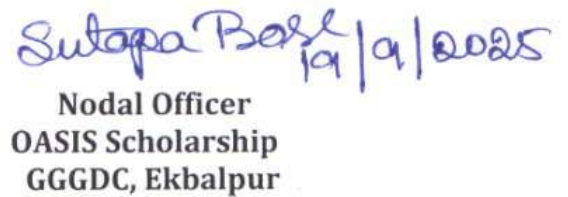 Sutapa Bose
19/9/2025
Nodal Officer
OASIS Scholarship
GGGDC, Ekbalpur